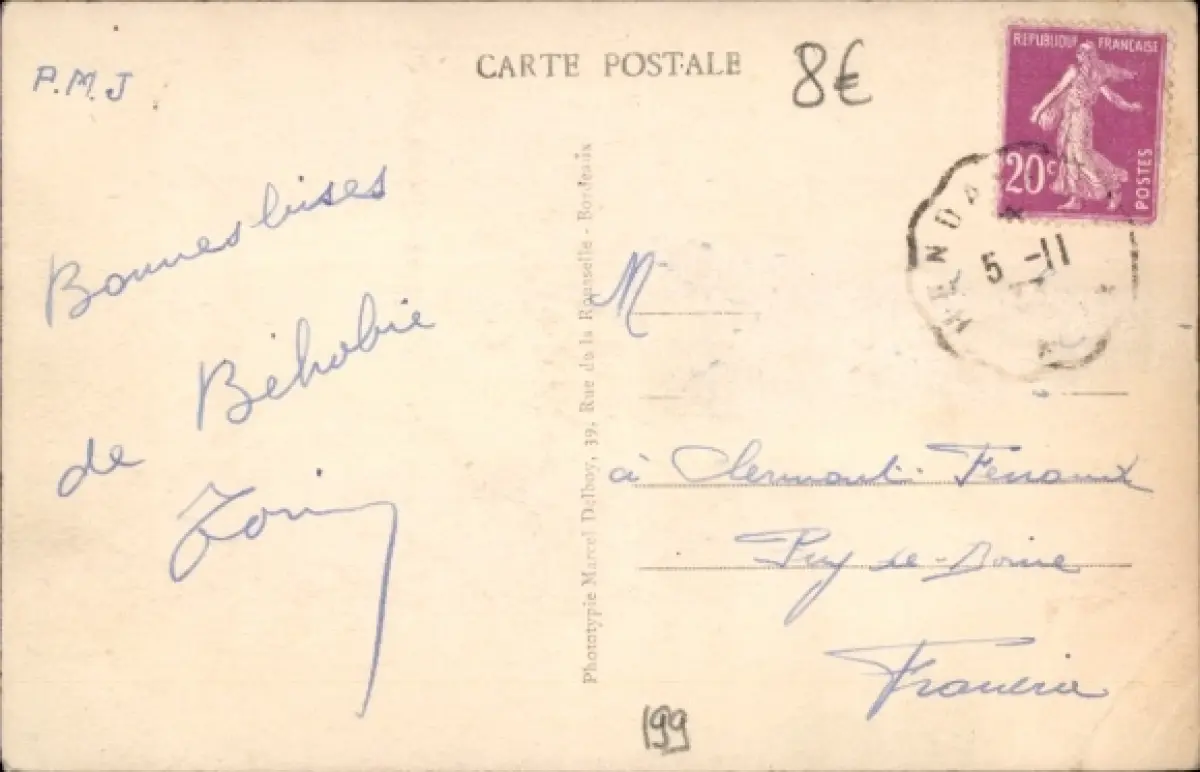 P.M.J
CARTE POSTALE
8€
REPUBLIQUE FRANÇAISE
20c
POSTES
HENDA
5 -11
Bonnes bises
de Béhobie
Phototypie Marcel Delboy, 39, Rue de la Rousselle - Bordeaux
M
à Clermont-Ferrand
Puy-de-Dôme
Francia
199